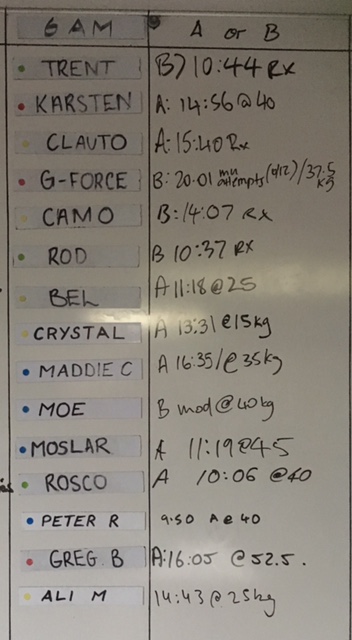 6 AM A or B
TRENT B) 10:44 Rx
KARSTEN A: 14:56 @ 40
CLAUTO A: 15:40 Rx
G-FORCE B: 20.01 mu attempts (0/12) / 37.5 kg
CAMO B: 14:07 Rx
ROD B 10:37 RX
BEL A 11:18 @ 25
CRYSTAL A 13:31 @ 15kg
MADDIE C A 16:35/@ 35kg
MOE B mod @ 40kg
MOSLAR A 11:19 @ 45
ROSCO A 10:06 @40
PETER R 9.50 A @ 40
GREG. B A: 16:05 @ 52.5.
ALI M 14:43 @ 25kg